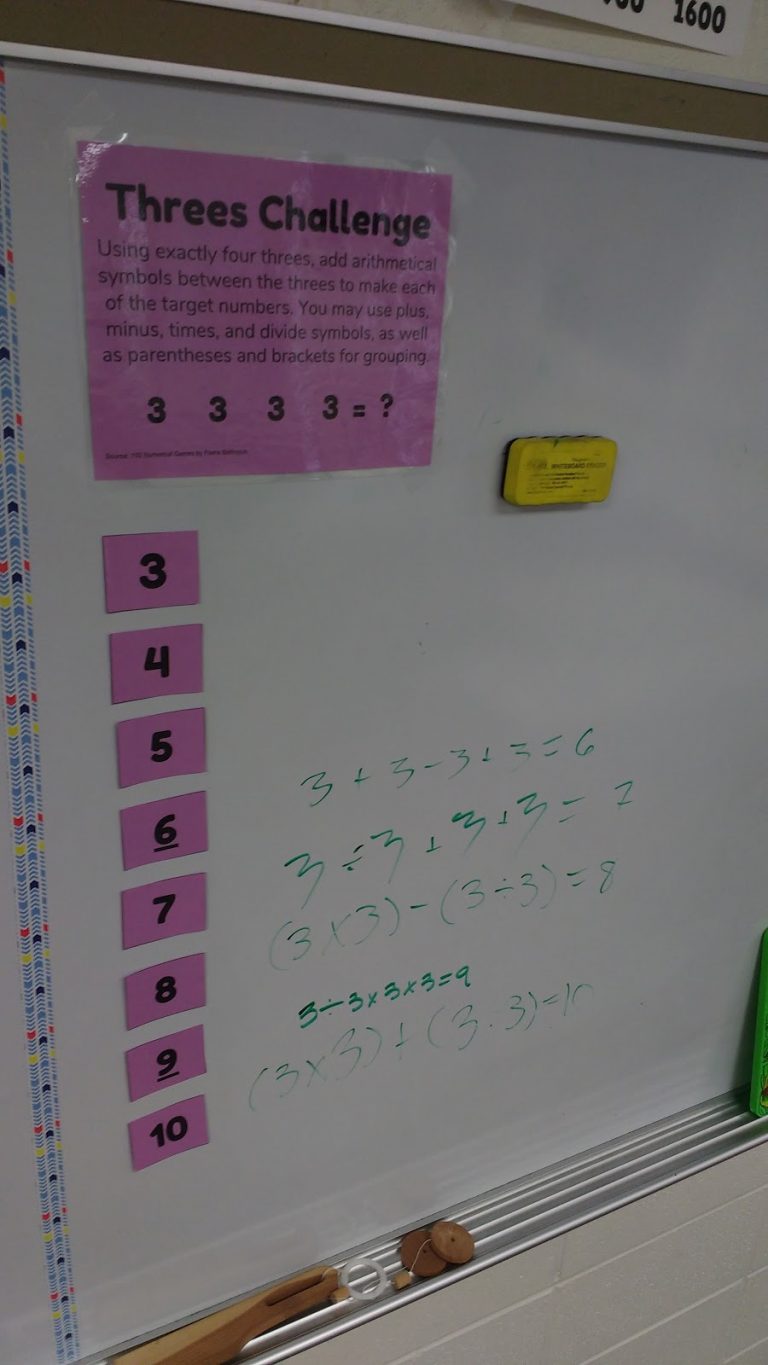 1600
Threes Challenge
Using exactly four threes, add arithmetical
symbols between the threes to make each
of the target numbers. You may use plus,
minus, times, and divide symbols, as well
as parentheses and brackets for grouping.
3 3 3 3 = ?
WHITEBOARD ERASER
3
4
5
3 + 3 - 3 + 3 = 6
6
3 ÷ 3 + 3 + 3 = 7
7
(3 x 3) - (3 ÷ 3) = 8
8
3 ÷ 3 x 3 x 3 = 9
9
(3 x 3) + (3 ÷ 3) = 10
10